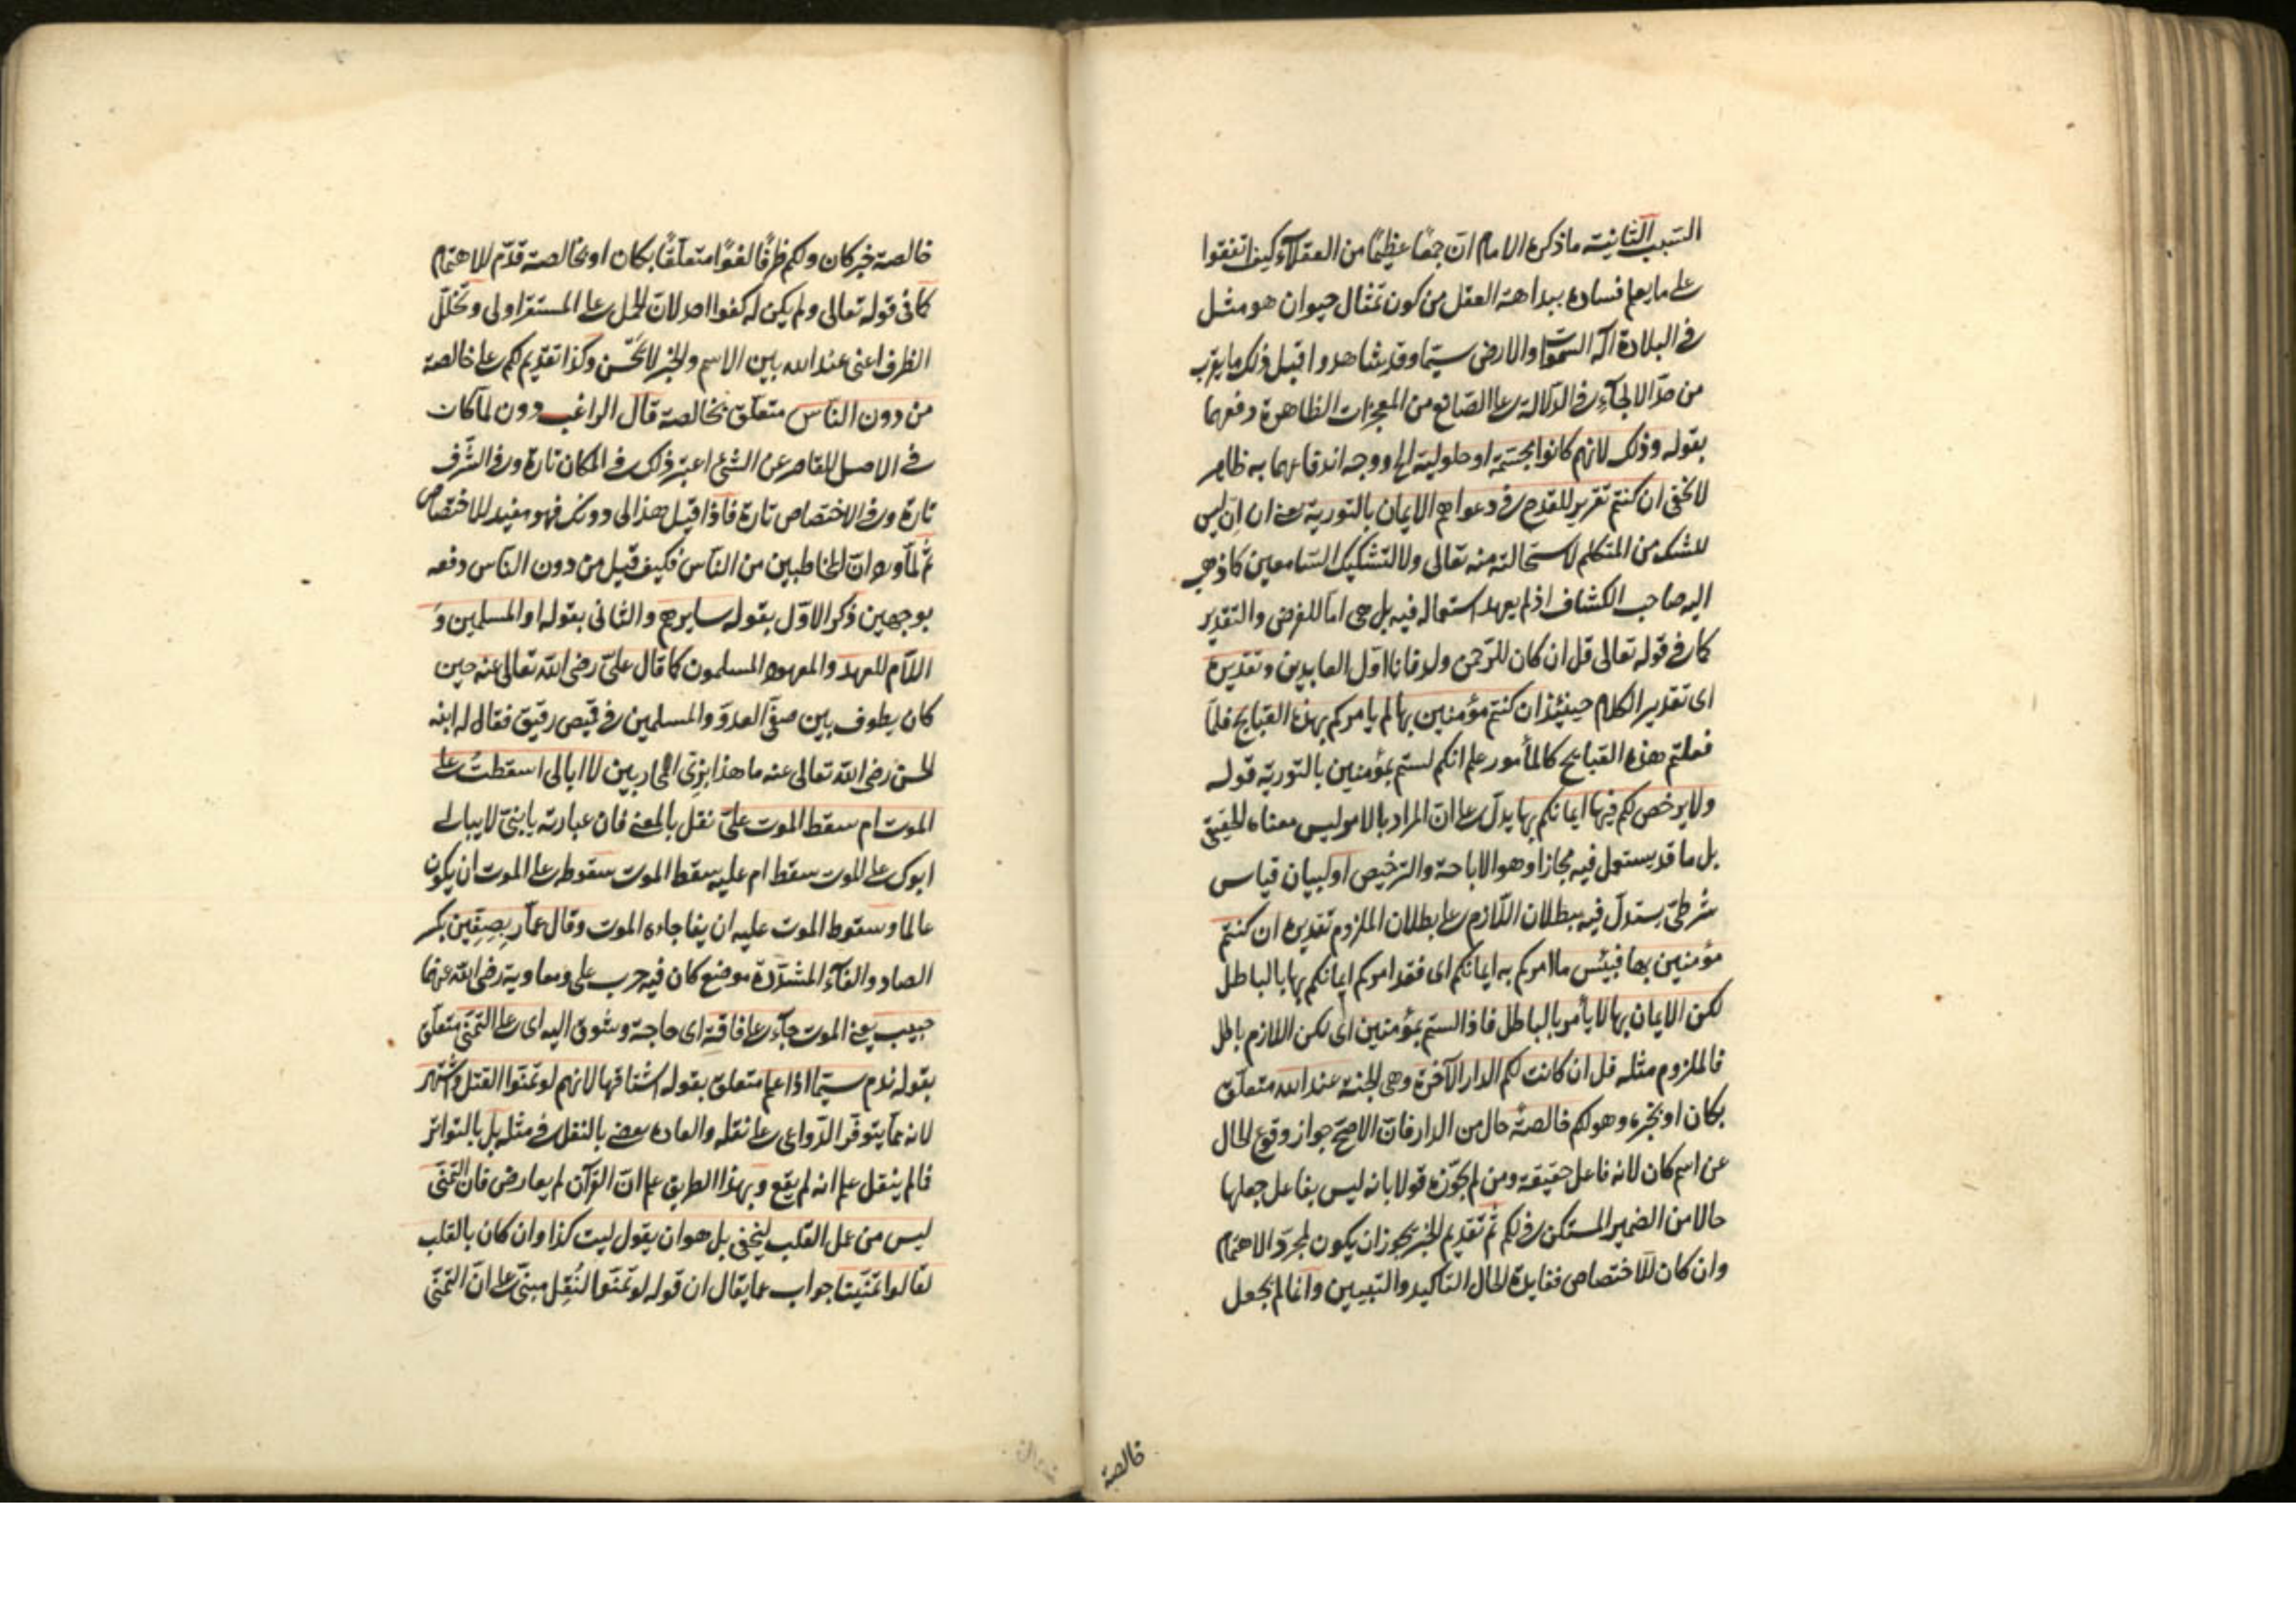 السبب الثانية ما ذكره الامام ان جمعًا عظيمًا من العقلاء كيف اتفقوا
على ما يعلم فساده ببداهة العقل من كون تمثال حيوان هو مثل
فى البلادة اله السموات والارض سيّما وقد شاهدوا قبل ذلك ما يقرب
من حدّ الالجاء فى الدلالة على الصانع من المعجزات الظاهرة دفعهما
بقوله وذلك لانهم كانوا مجسّمة او حلولية الخ ووجه اندفاعهما به ظاهر
لا يخفى ان كنتم تقرير للقدح فى دعواهم الايمان بالتورية يعنى ان ان ليس
للشك من المتكلم لاستحالته منه تعالى ولا لتشكيك السامعين كما ذهب
اليه صاحب الكشاف اذ لم يعهد استعماله فيه بل هى اما للفرض والتقدير
كما فى قوله تعالى قل ان كان للرّحمن ولد فانا اوّل العابدين وتقديره
اى تقدير الكلام حينئذ ان كنتم مؤمنين بها لم يامركم بهذه القبايح فلمّا
فعلتم هذه القبايح كالمأمور علم انكم لستم بمؤمنين بالتورية قوله
ولا يرخص لكم فيها ايمانكم بها يدلّ على انّ المراد بالامر ليس معناه الحقيقى
بل ما قد يستعمل فيه مجازا وهو الاباحة والترخيص او لبيان قياس
شرطىّ يستدلّ فيه ببطلان اللّازم على بطلان الملزوم تقديره ان كنتم
مؤمنين بها فبئس ما امركم به ايمانكم اى فقد امركم ايمانكم بها بالباطل
لكن الايمان بها لا يأمر بالباطل فاذا لستم بمؤمنين اى لكن اللازم باطل
فالملزوم مثله قل ان كانت لكم الدار الآخرة وهى الجنة عند الله متعلّق
بكان او بخبره وهو لكم خالصةً حال من الدار فانّ الاصحّ جواز وقوع الحال
عن اسم كان لانه فاعل حقيقة ومن لم يجوّزه قولا بانه ليس بفاعل جعلها
حالا من الضمير المستكن فى لكم ثمّ تقديم الخبر يجوز ان يكون لمجرّد الاهتمام
وان كان للاختصاص ففايدة الحال التاكيد والتبيين وانما لم يجعل
خالصة
خالصة خبر كان ولكم ظرفًا لغوًا متعلّقًا بكان او بخالصة قدّم للاهتمام
كما فى قوله تعالى ولم يكن له كفوا احد لانّ الحمل على المستقر اولى وتخلّل
الظرف اعنى عند الله بين الاسم والخبر لا يحسن وكذا تقديم لكم على خالصة
من دون الناس متعلّق بخالصة قال الراغب دون لمّا كان
فى الاصل للقاصر عن الشئ اعتبر ذلك فى المكان تارة وفى الشّرف
تارة وفى الاختصاص تارة فاذا قيل هذا لى دونك فهو مفيد للاختصاص
ثمّ لمّا ورد انّ المخاطبين من النّاس فكيف قيل من دون الناس دفعه
بوجهين ذكر الاوّل بقوله سايرهم والثانى بقوله او المسلمين و
اللّام للعهد والمعهود المسلمون كما قال علىّ رضى الله تعالى عنه حين
كان يطوف بين صفّى العدوّ والمسلمين فى قميص رقيق فقال له ابنه
الحسن رضى الله تعالى عنه ما هذا بزىّ المحاربين لا ابالى اسقطتُ على
الموت ام سقط الموت علىّ نقل بالمعنى فان عبارته يا بنىّ لا يبالى
ابوك على الموت سقط ام عليه سقط الموت سقوطه على الموت ان يكون
عالما وسقوط الموت عليه ان يفاجاءه الموت وقال عمّار بصِفّين بكسر
الصاد والفاء المشدّدة موضع كان فيه حرب على ومعاوية رضى الله عنهما
حبيب يعنى الموت جاء على فاقة اى حاجة وشوق اليه اى على التمنّى متعلّق
بقوله ندم سيّما اذا علم متعلق بقوله اشتاقها لانهم لو تمنّوا لنقل واشتهر
لانه ممّا يتوفّر الدّواعى على نقله والعادة يقضى بالنقل فى مثله بل بالتواتر
فالم ينقل علم انه لم يقع وبهذا الطريق علم انّ القرآن لم يعارض فان التمنّى
ليس من عمل القلب ليخفى بل هو ان يقول ليت كذا وان كان بالقلب
لقالوا تمنّينا جواب عما يقال ان قوله لو تمنّوا لنُقِل مبنىّ على انّ التمنّى